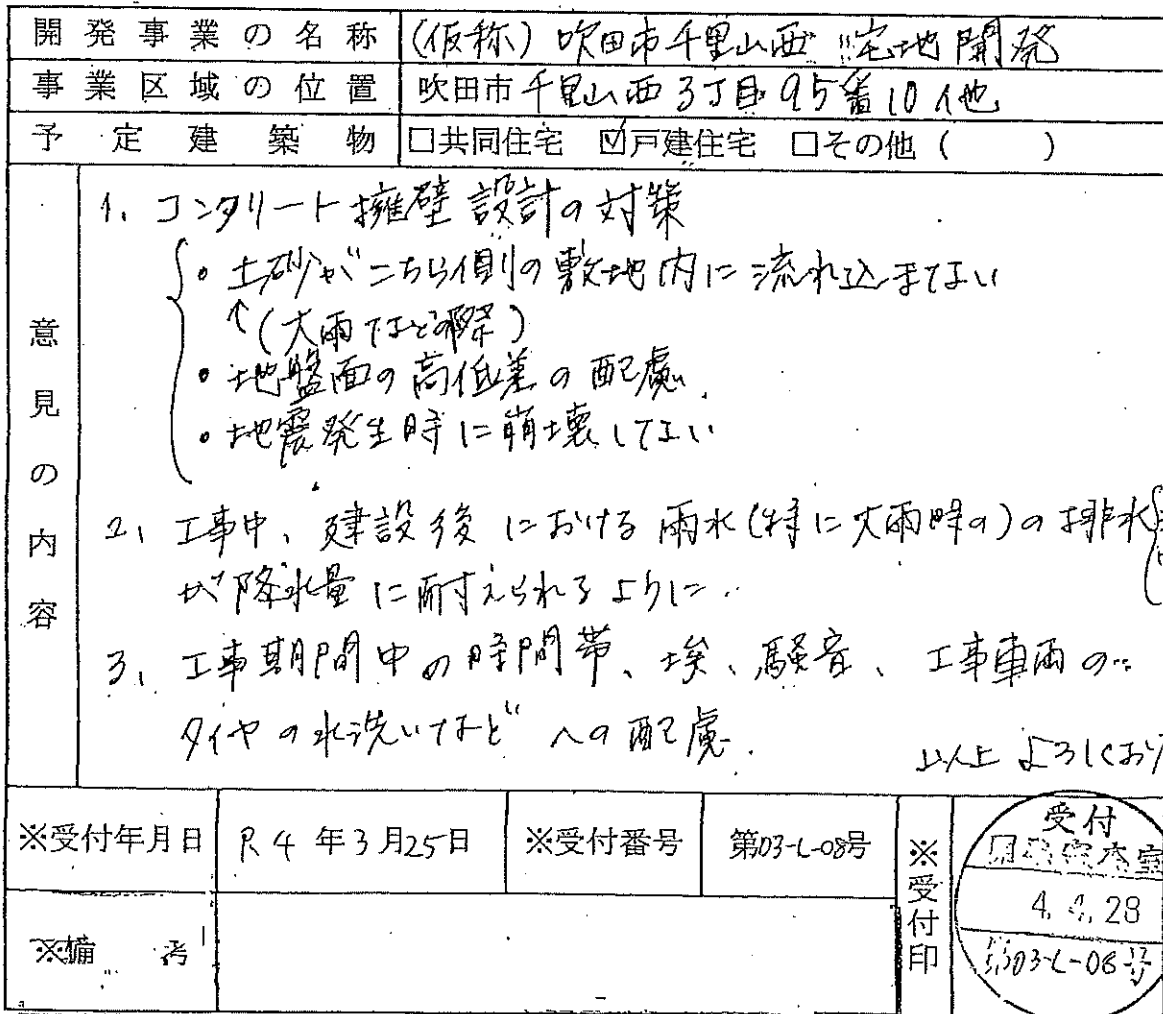 開発事業の名称 (仮称)吹田市千里山西 宅地開発
事業区域の位置 吹田市千里山西3丁目95番10 他
予定建築物 □共同住宅 ☑戸建住宅 □その他( )
意見の内容
1、コンクリート擁壁設計の対策
・土砂がこちら側の敷地内に流れ込まない
↑(大雨などの際)
・地盤面の高低差の配慮
・地震発生時に崩壊しない
2、工事中、建設後における雨水(特に大雨時の)の排水
が降水量に耐えられるように
3、工事期間中の時間帯、埃、騒音、工事車両の
タイヤの水洗いなどへの配慮
以上 よろしくお
※受付年月日 R4年3月25日 ※受付番号 第03-L-08号 ※受付印
受付
4.4.28
第03-L-08号
※備考